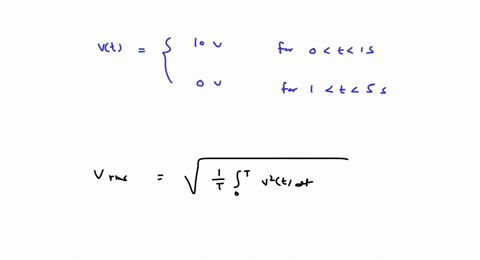 v(t) = { 10 v for 0 < t < 1s
0 v for 1 < t < 5 s
V rms = √ 1/T ∫₀ᵀ v²(t) dt